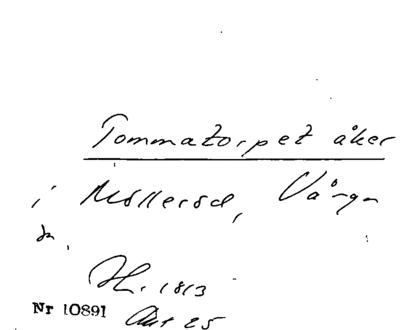 Tommatorpet åker
i Möllerød, Vånga
sn.
H. 1813
Nr 10891 Akt 25